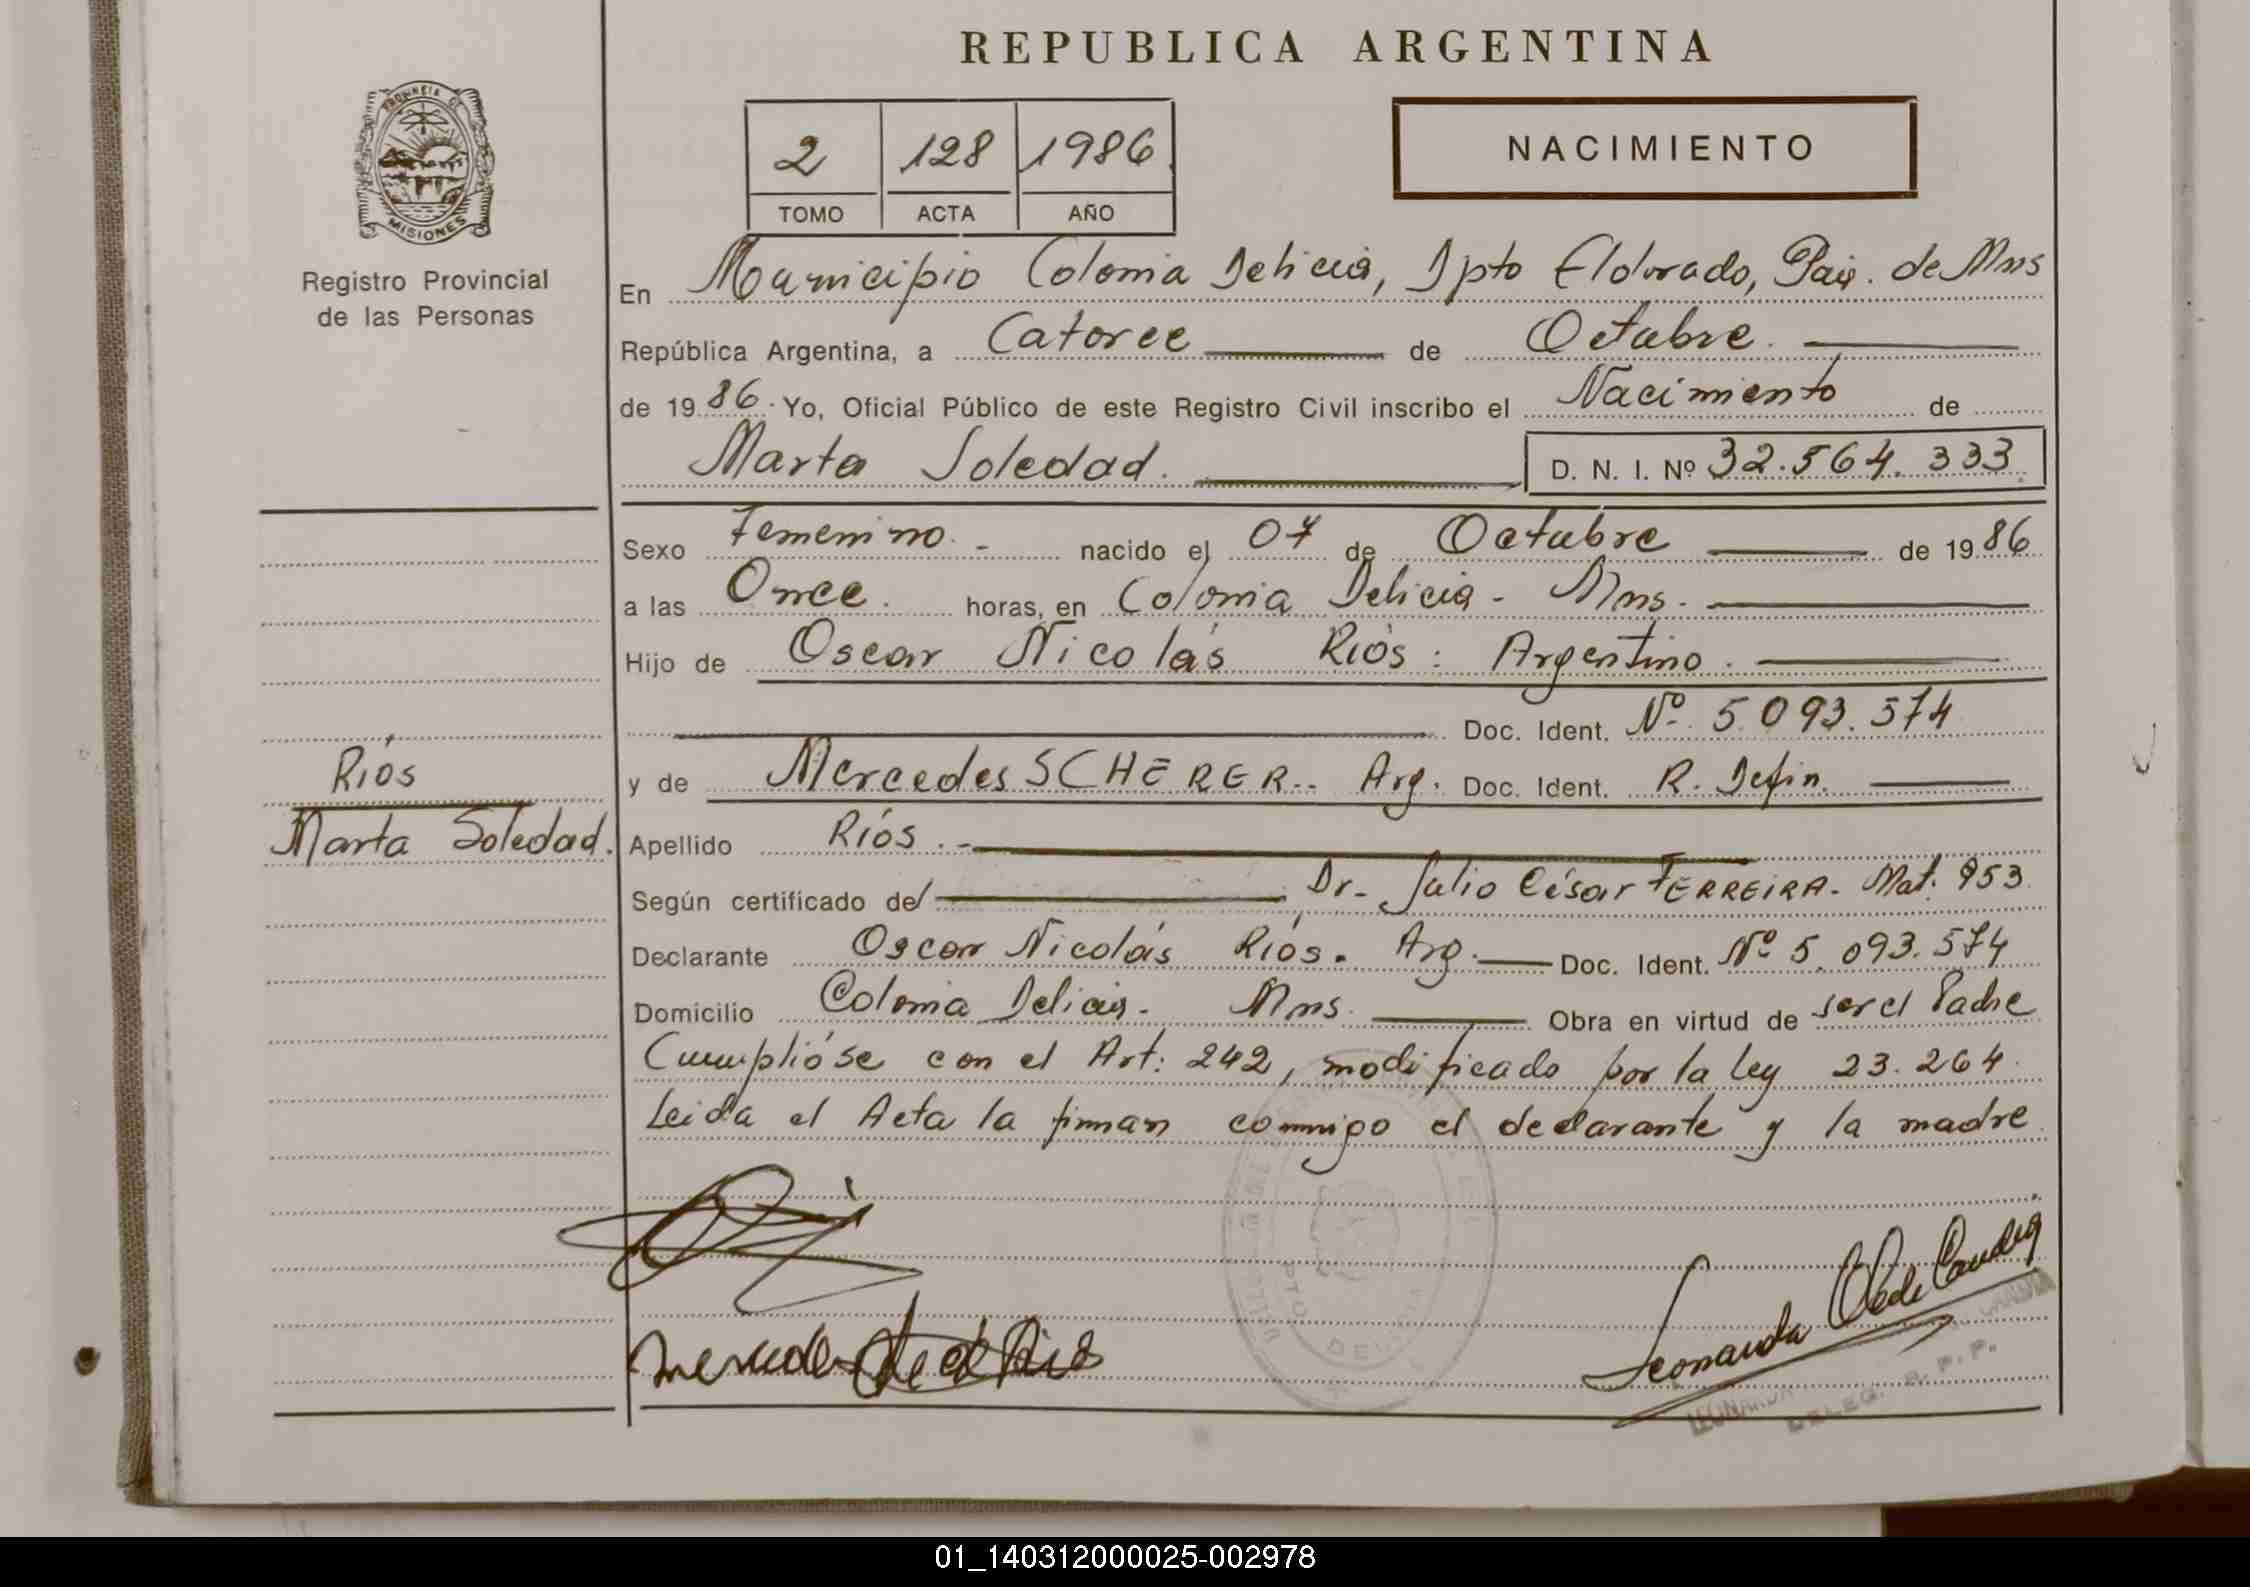 REPUBLICA ARGENTINA
PROVINCIA DE
MISIONES
Registro Provincial
de las Personas
2 128 1986
TOMO ACTA AÑO
NACIMIENTO
En Municipio Colonia Delicia, Dpto Eldorado, de Mns
República Argentina, a Catorce de Octubre.
de 1986. Yo, Oficial Público de este Registro Civil inscribo el Nacimiento de
Marta Soledad. D. N. I. Nº 32.564.333
Sexo Femenino.- nacido el 07 de Octubre de 1986
a las Once. horas, en Colonia Delicia - Mns.
Hijo de Oscar Nicolás Ríos: Argentino.
Doc. Ident. Nº 5.093.574
y de Mercedes SCHERER.- Arg. Doc. Ident. R. Defin.
Ríos
Marta Soledad.
Apellido Ríos.-
Según certificado del Dr. Julio César FERREIRA. Mat. 953
Declarante Oscar Nicolás Ríos. Arg. Doc. Ident. Nº 5.093.574
Domicilio Colonia Delicia. Mns. Obra en virtud de ser el Padre
Cumplióse con el Art: 242, modificado por la ley 23.264.
Leida el Acta la firman conmigo el declarante y la madre
DELEG. R. P. P.
01_140312000025-002978